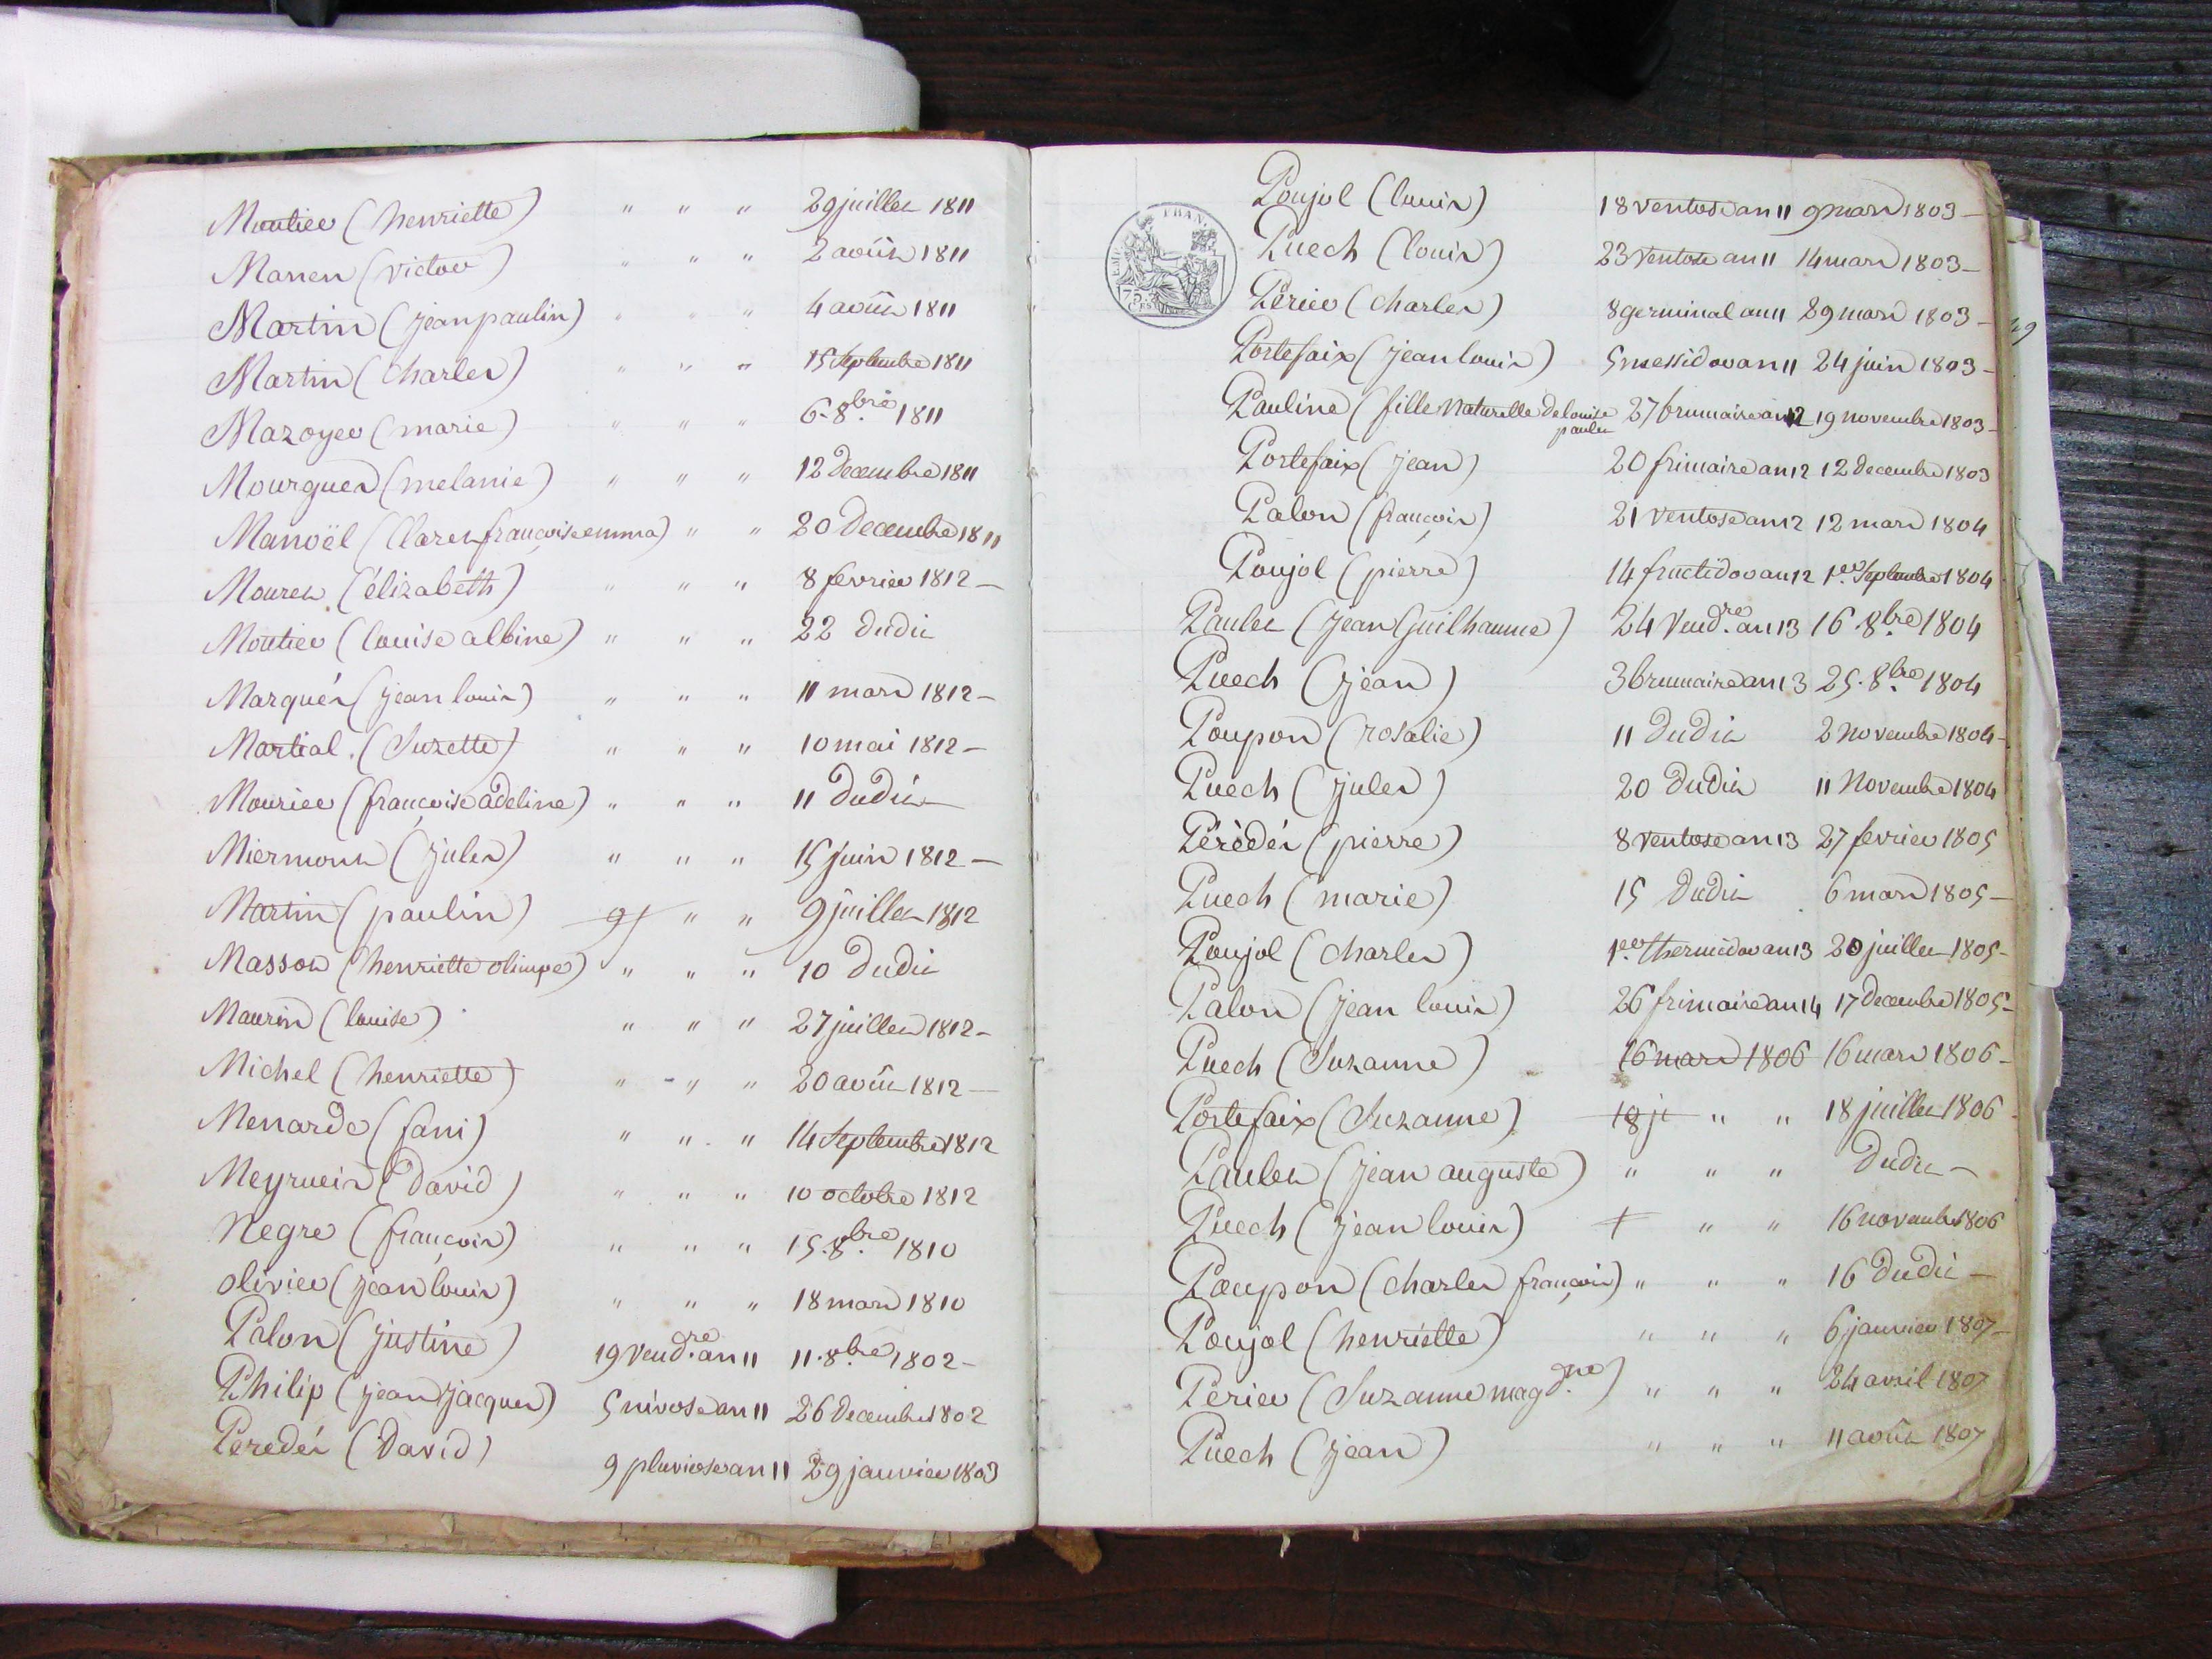 Moutier (henriette) " " " 29 juillet 1811
Manen (victor) " " " 2 août 1811
Martin (jean paulin) " " " 4 août 1811
Martin (charles) " " " 15 Septembre 1811
Mazoyer (marie) " " " 6. 8.bre 1811
Mourgues (melanie) " " " 12 Decembre 1811
Manoël (Clares françoise emma) " " 20 Decembre 1811
Mouret (élizabeth) " " " 8 fevrier 1812 –
Moutier (louise albine) " " " 22 dudit
Marqués (jean louis) " " " 11 mars 1812 –
Martial. (Suzette) " " " 10 mai 1812 –
Mourier (françoise adeline) " " " 11 dudit –
Miermont (jules) " " " 15 juin 1812 –
Martin (paulin) " " 9 juillet 1812
Masson (henriette olimpe) " " " 10 dudit
Maurin (louise) " " " 27 juillet 1812 –
Michel (henriette) " " " 20 août 1812 –
Menarde (fani) " " " 14 Septembre 1812
Meyrueis (David) " " " 10 octobre 1812
Negre (françois) " " " 15. 8.bre 1810
olivier (jean louis) " " " 18 mars 1810
Palon (justine) 19 Vend.re an 11 11. 8.bre 1802 –
Philip (jean jacques) 5 nivose an 11 26 Decembre 1802
Peredés (David) 9 pluviose an 11 29 janvier 1803
Poujol (louis) 18 ventose an 11 9 mars 1803 –
Puech (louis) 23 Ventose an 11 14 mars 1803 –
Périer (charles) 8 germinal an 11 29 mars 1803 –
Portefaix (jean louis) 5 messidor an 11 24 juin 1803 –
Pauline (fille naturelle de louise 27 brumaire an 12 19 novembre 1803 –
paulet
Portefaix (jean) 20 frimaire an 12 12 decembre 1803
Palon (françois) 21 ventose an 12 12 mars 1804
Poujol (pierre) 14 fructidor an 12 1.er Septembre 1804
Paulet (jean Guilhaume) 24 Vend.re an 13 16. 8.bre 1804
Puech (jean) 3 brumaire an 13 25. 8.bre 1804
Poupon (rosalie) 11 dudit 2 novembre 1804 –
Puech (jules) 20 dudit 11 Novembre 1804
Pérédés (pierre) 8 ventose an 13 27 fevrier 1805
Puech (marie) 15 dudit 6 mars 1805 –
Poujol (charles) 1.er thermidor an 13 20 juillet 1805 –
Palon (jean louis) 26 frimaire an 14 17 decembre 1805 –
Puech (Suzanne) 16 mars 1806 16 mars 1806 –
Portefaix (Suzanne) 18 ji " " 18 juillet 1806
Paulet (jean auguste) " " " dudit –
Puech (jean louis) " " 16 novembre 1806
Poupon (charles françois) " " " 16 dudit –
Poujol (henriette) " " " 6 janvier 1807 –
Perier (Suzanne mag.dne) " " " 24 avril 1807
Puech (jean) " " " 11 août 1807